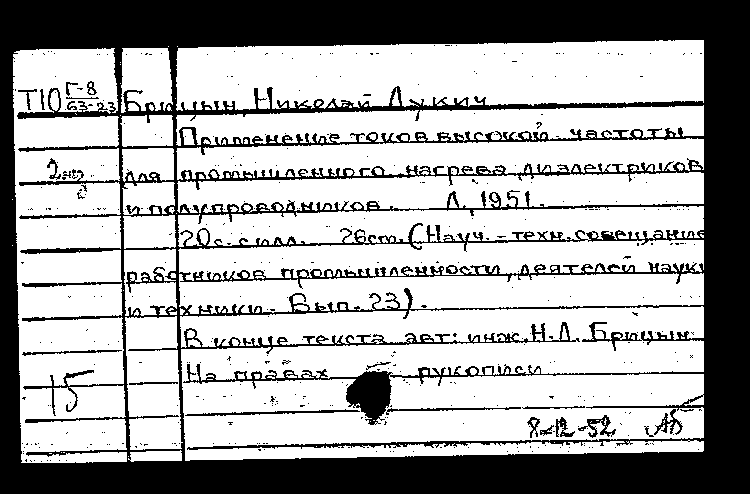 Т10 Г-8
63-23 Брицын, Николай Лукич
Применение токов высокой частоты
2 экз для промышленного нагрева диэлектриков
и полупроводников. Л., 1951.
20с. с илл. 26см. (Науч.-техн. совещание
работников промышленности, деятелей науки
и техники. Вып. 23).
В конце текста авт: инж. Н.Л. Брицын
На правах рукописи
15
8-12-52